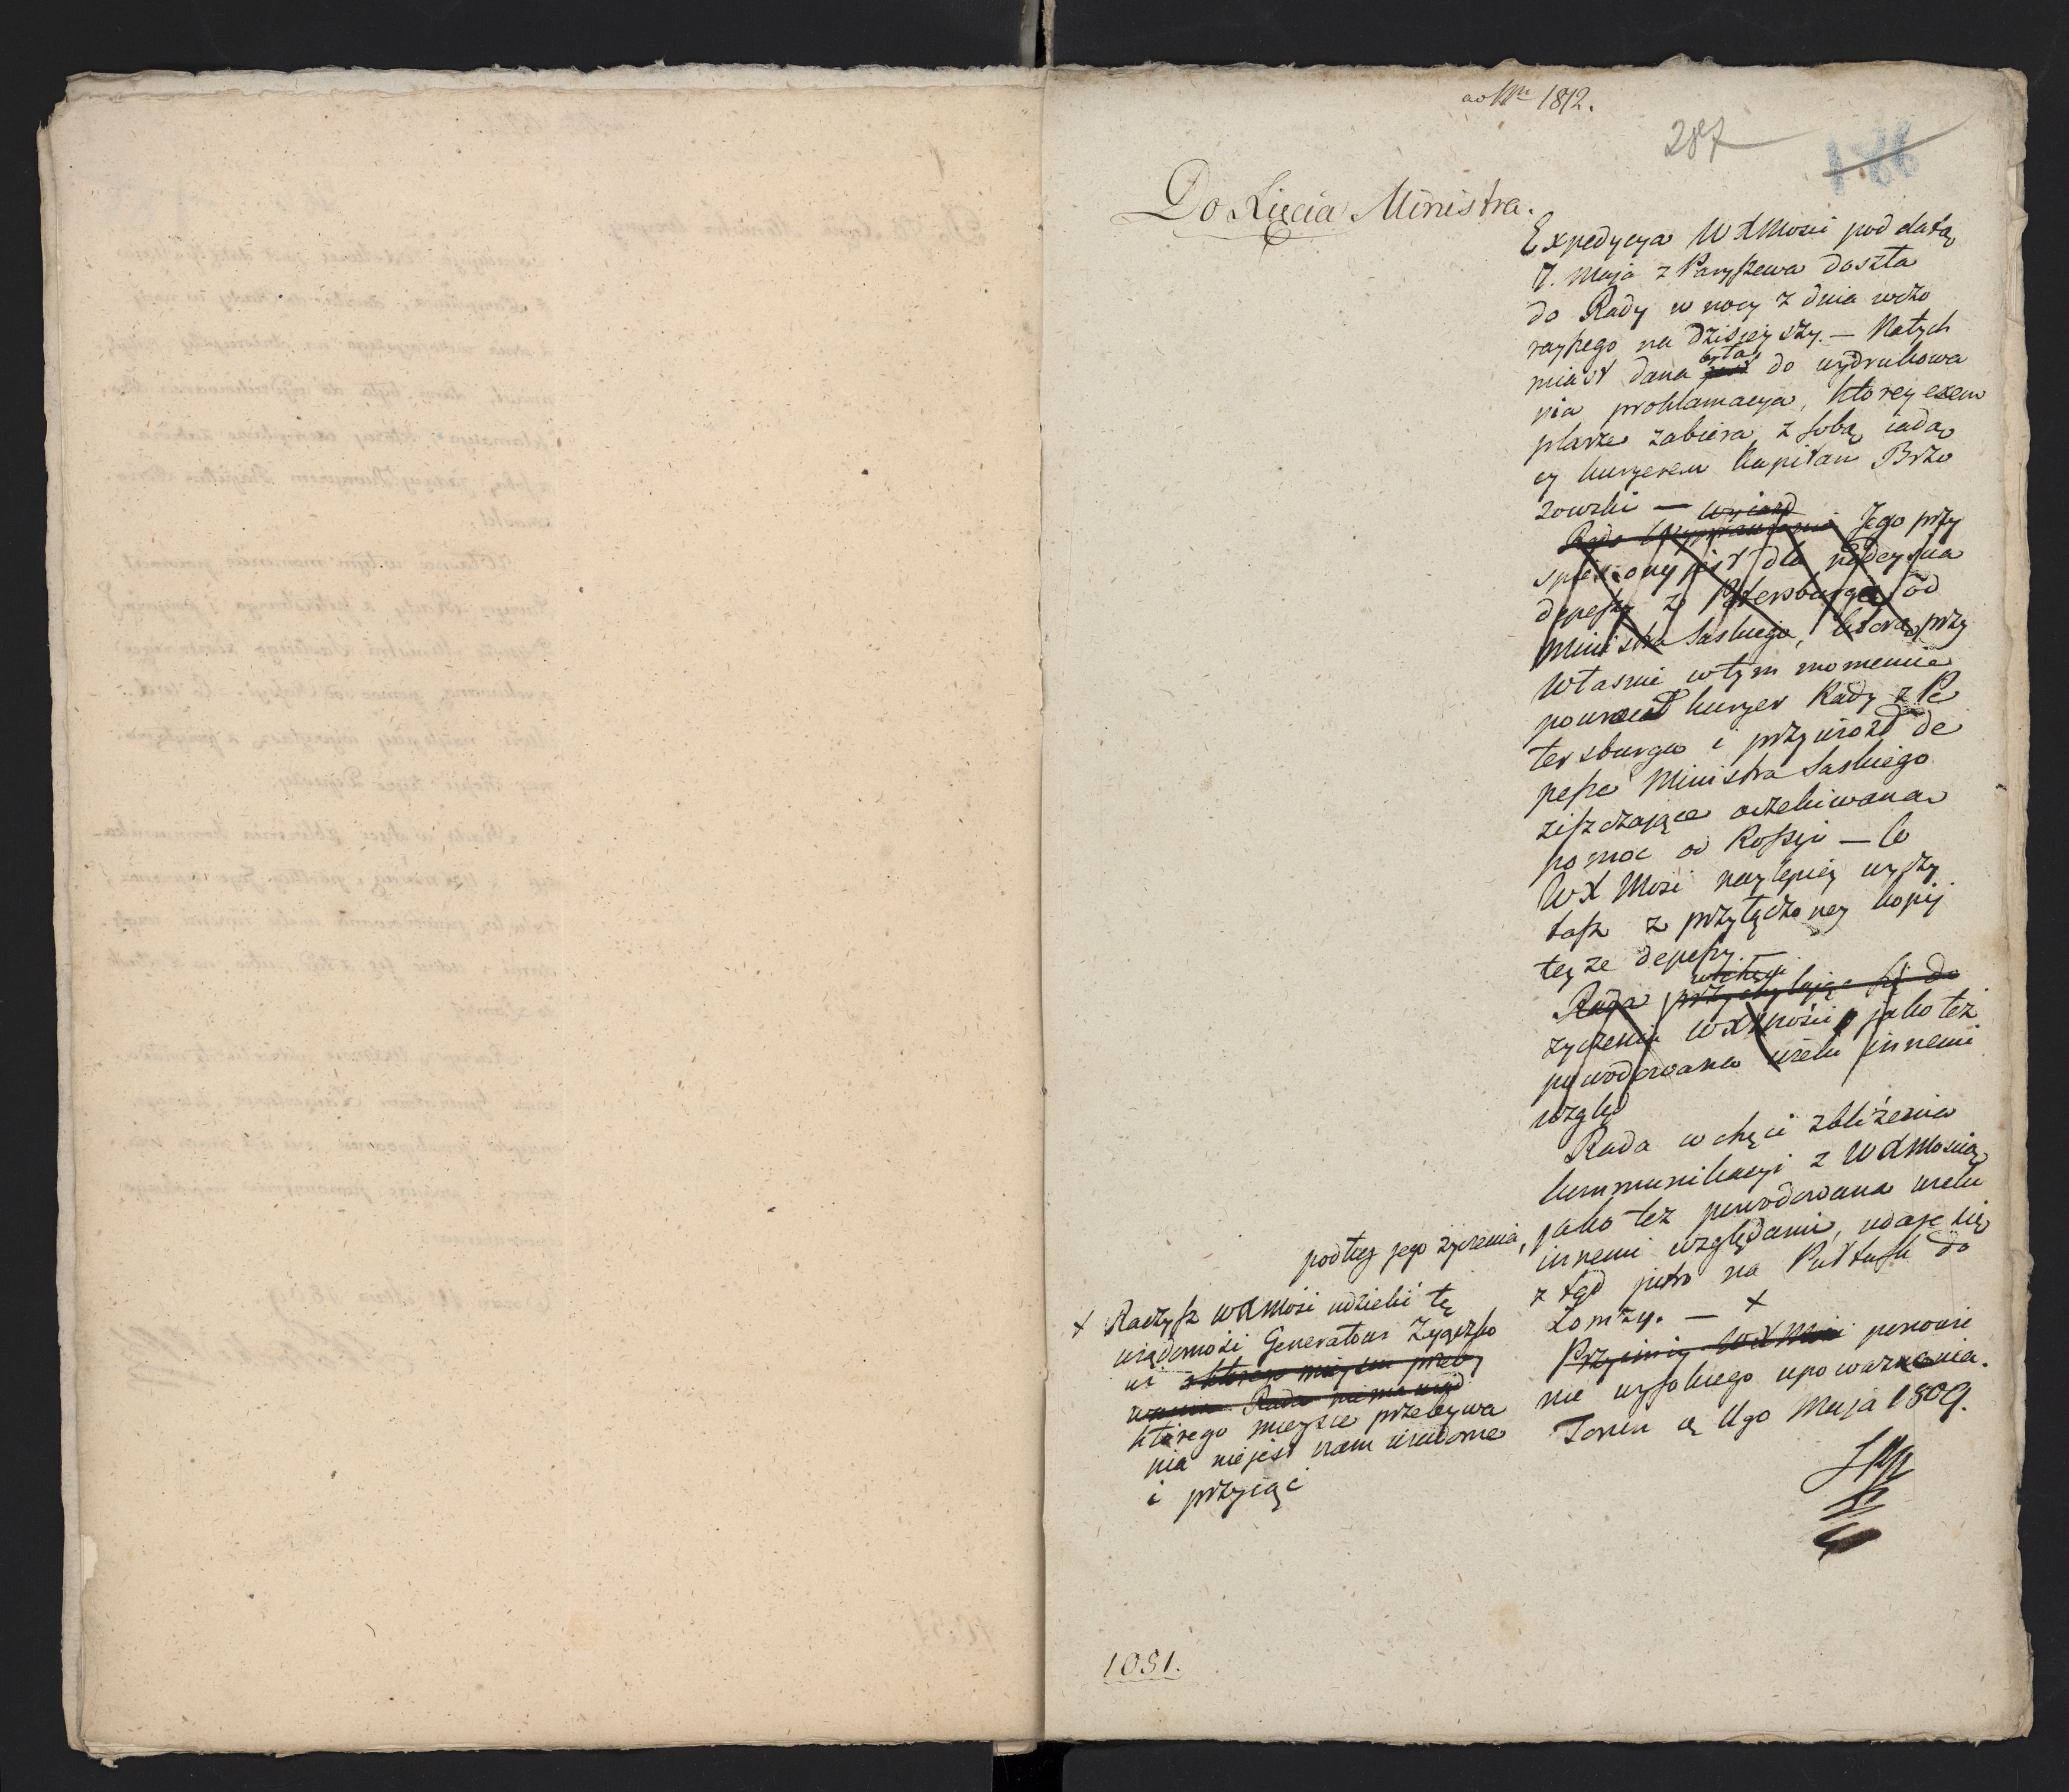 ad Nm 1812.
287
186
Do Xięcia Ministra.
Expedycya WXMości pod datą
7. Maja z Paryszewa doszła
do Rady w nocy z dnia wczo
rayszego na dzisieyszy. — Natych
miast dana była do wydrukowa
nia proklamacya, którey exem
plarze zabiera z sobą iadą
cy kuryerem Kapitan Brzo
zowski —
wyiazd
Rada Jego przy
spieszony jest dla nadeyścia
depeszy z Petersburga od
Ministra Saskiego, którą przy
Własnie w tym momencie
powrócił kuryer Rady z Pe
tersburga i przywiózł de
pesze Ministra Saskiego
ziszczające oczekiwaną
pomoc od Rossyi — Co
WX Mość naylepiey wyczy
tasz z przyłączoney kopij
teyże depeszy. —
w chęci
Rada przychylając się do
życzenia WXMości jako też
powodowana wielu innemi
wzglę
Rada w chęci zbliżenia
kommunikacyi z WXMością
podług jego życzenia,
jako też powodowana wielu
innemi względami, udaje się
z tąd jutro na Pułtusk do
Łomży. — +
Przyimiy WXMość ponowie
nie wysokiego upoważania.
Toruń d. 11go Maja 1809.
+ Raczysz WXMość udzielić tę
wiadomość Generałowi Zayączko
wi którego mieysca przeby
wania Rada nie ma wiad
którego mieysce przebywa
nia nie jest nam wiadome
i przyiąć
1051.